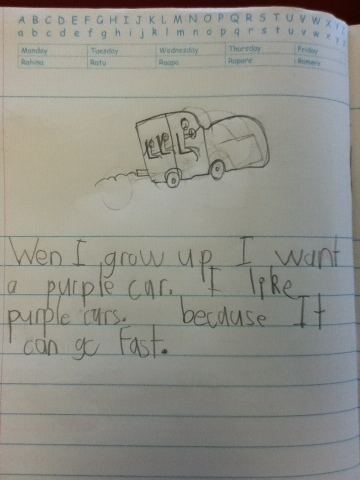 A B C D E F G H I J K L M N O P Q R S T U V W X Y Z
a b c d e f g h i j k l m n o p q r s t u v w x y z
Monday Tuesday Wednesday Thursday Friday
Rahina Ratu Raapa Rapare Ramere
Wen I grow up I want
a purple car. I like
purple cars. because It
can go fast.